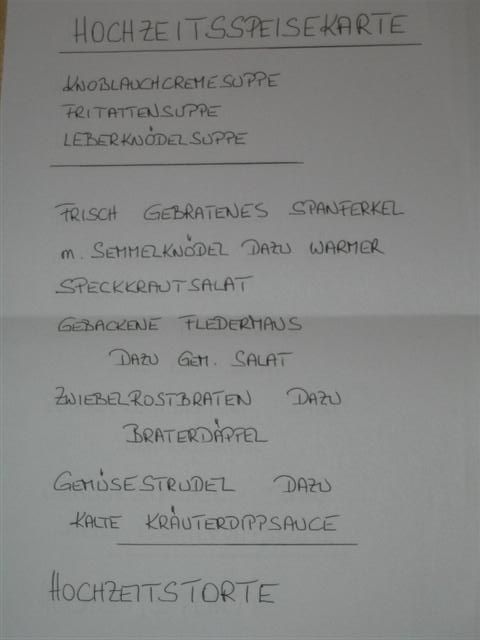 HOCHZEITSSPEISEKARTE
KNOBLAUCHCREMESUPPE
FRITATTENSUPPE
LEBERKNÖDELSUPPE
FRISCH GEBRATENES SPANFERKEL
m. SEMMELKNÖDEL DAZU WARMER
SPECKKRAUTSALAT
GEBACKENE FLEDERMAUS
DAZU GEM. SALAT
ZWIEBELROSTBRATEN DAZU
BRATERDÄPFEL
GEMÜSESTRUDEL DAZU
KALTE KRÄUTERDIPPSAUCE
HOCHZEITSTORTE